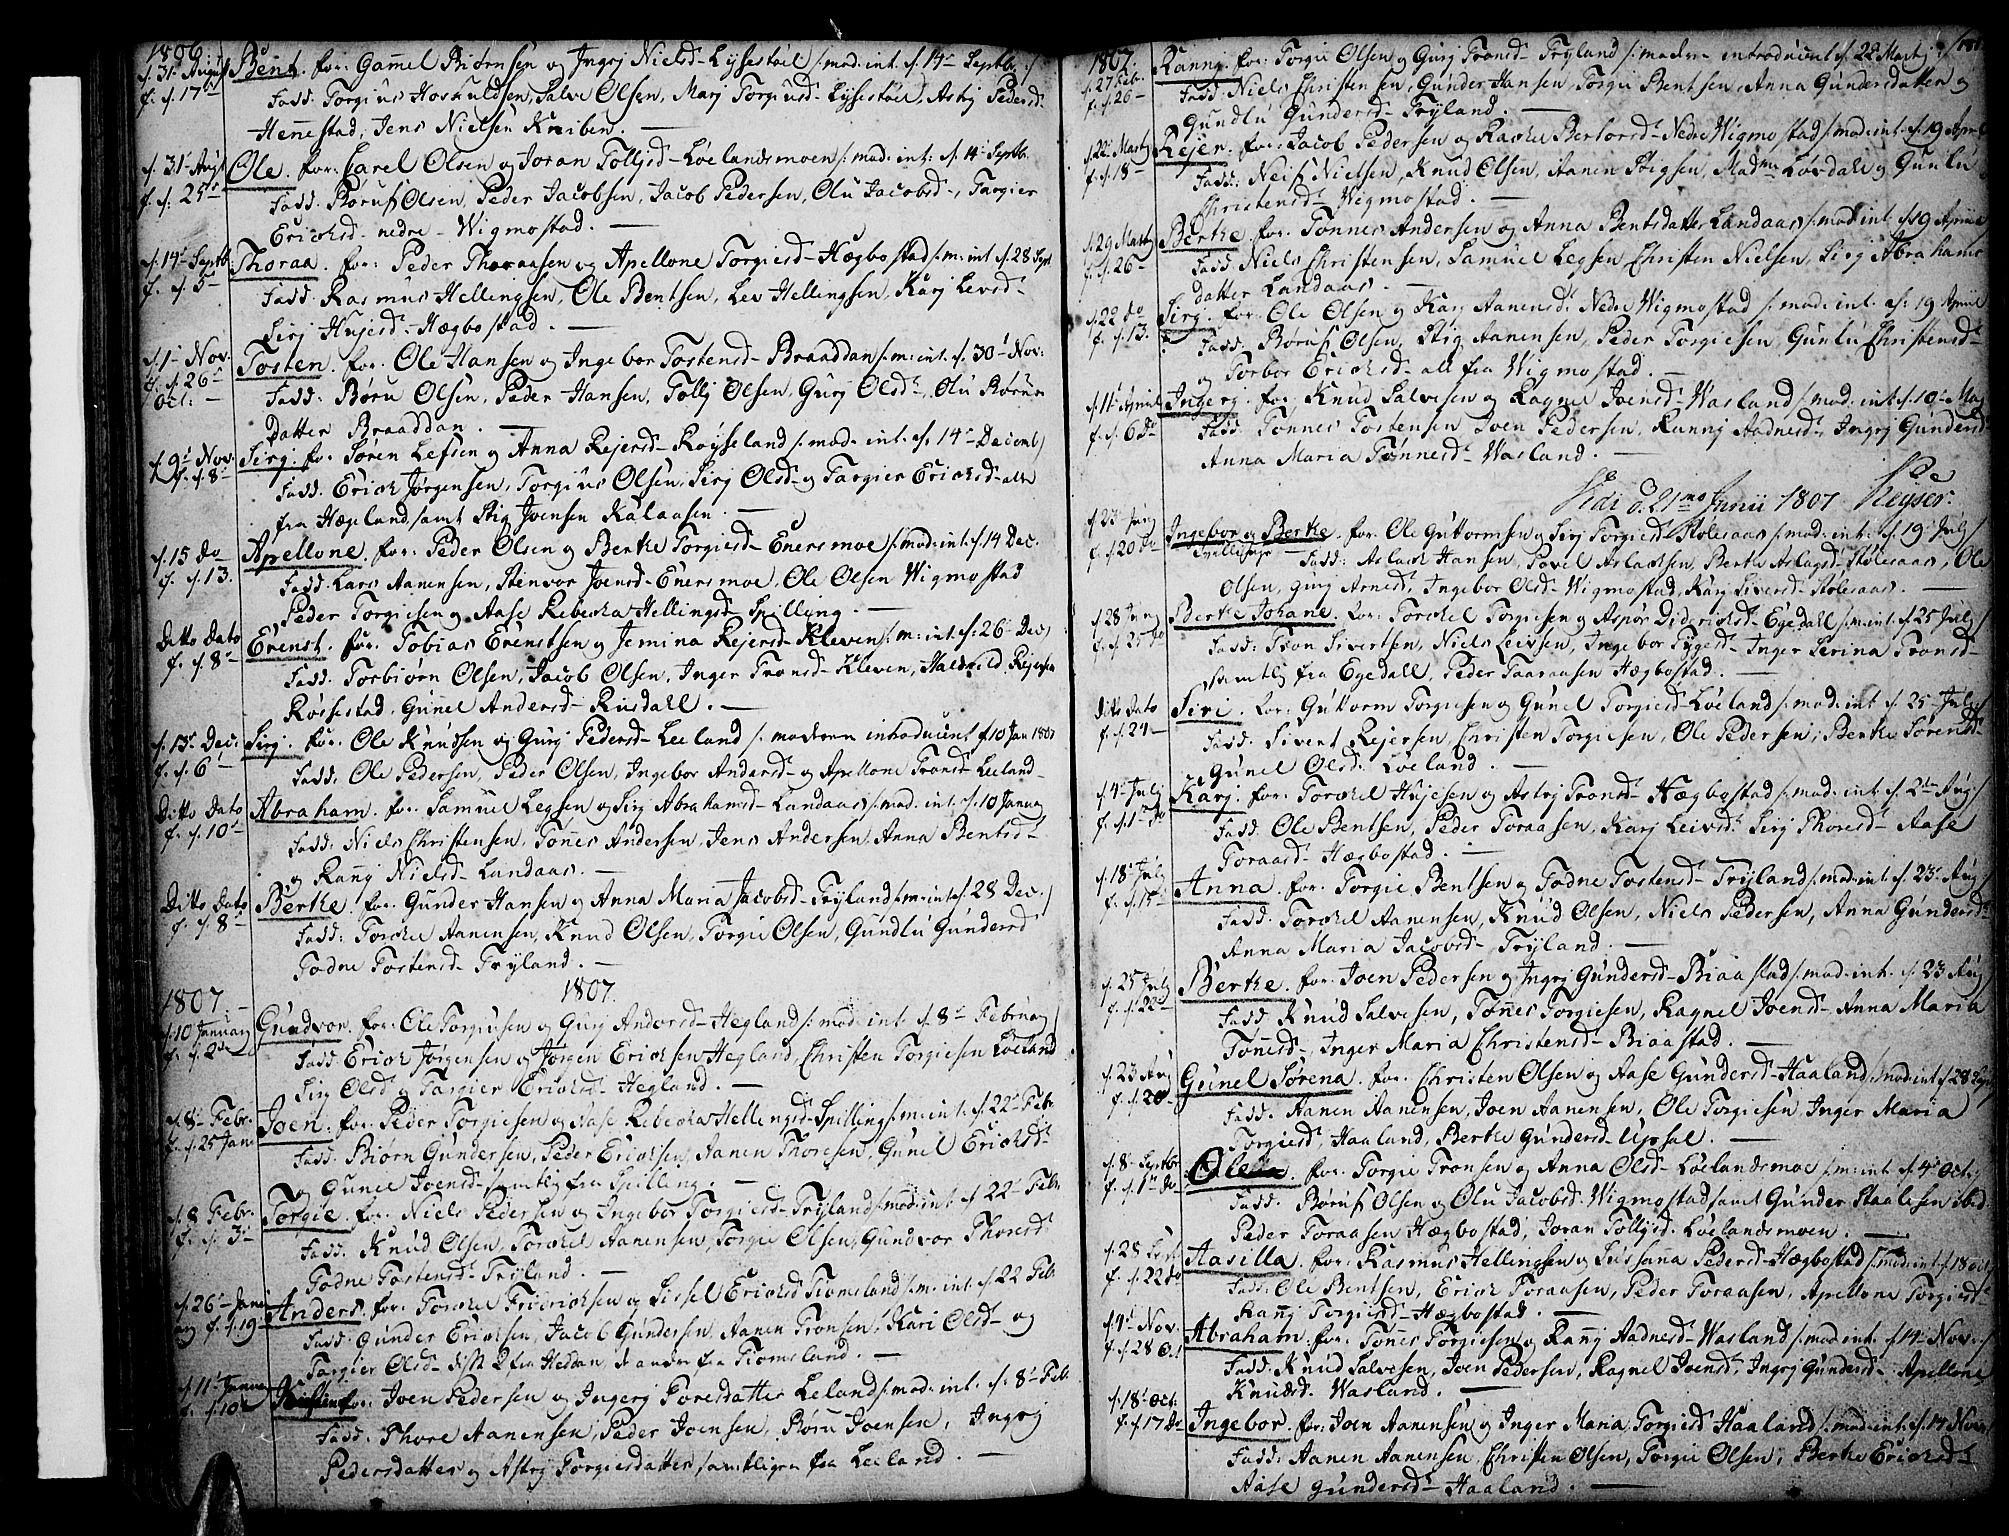 1806.
d. 31 August Bent. for: Gamel Biörnsen og Ingrj Nielsd- Lyssestöl /: mod: int. d. 14 Septb: /
f. d. 17 Fadd. Torgius Hoskuldsen, Salve Olsen, Marj Torgiusd- Lyssestöl, Astrj Pedersd-
Hennestad, Jens Nielsen Kniben. —
d. 31 Augst Ole. for: Carel Olsen og Joran Tollijsd- Löelandsmoen /: mod: int: d. 14 Septb.
f. d. 25 Fadd. Böruf Olsen, Peder Jacobsen, Jacob Pedersen, Olu Jacobsd-, Targier
Ericksd- nedre- Wigmostad. —
d. 14 Septb Thoraa. for: Peder Thoraasen og Apellone Torgiesd- Hægbostad /: m: int d. 28 Sept
f. d. 5 Fadd. Rasmus Hellingsen, Ole Bentsen, Lev Hellingsen, Karj Levsd-
Sirj Hujesd- Hægbostad. —
d. 1 Nov. Tosten. for. Ole Hansen og Ingebor Tostensd- Braaddan /: m: int. d. 30 Nov:
f. d. 26 Fadd: Böru Olsen, Peder Hansen, Tollj Olsen, Gurj Olsd-, Olu Börus
Oct: — datter Braaddan. —
d. 9 Nov. Sirj. for Sören Lefsen og Anna Rejersd- Röysseland /: mod: int. d. 14 Decemb/
f. d. 8 Fadd. Erick Jörgensen, Torgius Olsen, Sirj Olsd- og Targier Ericksd- alle
fra Hægeland, samt Stig Joensen Kalaasen. —
d. 15 Do Apellone. for: Peder Olsen og Berthe Torgiesd- Enersmoe /: mod: int. d. 14 Dec.
f. d. 13. Fadd. Lars Aanensen, Stenvor Joensd- Enersmoe, Ole Olsen Wigmostad
Peder Torgiesen og Aase Rebecka Hellingsd- Spilling. —
Ditto Dato Erenst. for. Tobias Erenstsen og Jemina Rejersd- Kleven /: m: int. d. 26 Dec/
f. d. 8 Fadd. Torbiörn Olsen, Jacob Olsen, Inger Tronsd- Kleven, Rejersen
Rössestad, Gunel Andersd- Risdahl. —
d. 15 Dec: Sirj. for. Ole Knudsen og Gurj Pedersd- Leeland /: moderen introducert d 10 Jan 1807
f. d. 6 Fadd. Ole Pedersen, Peder Olsen, Ingebor Andersd- og Apellone Tronsd- Leeland
Ditto Dato Abraham. for. Samuel Legsen og Sirj Abrahamsd- Landaas /: mod. int. d. 10 Januarj
f. d. 10 Fadd. Niels Christensen, Tönnes Andersen, Jens Andersen, Anna Bentsd-
og Ranj Nielsd- Landaas. —
Ditto Dato Berthe. for. Gunder Hansen og Anna Maria Jacobsd- Trÿland /: m: int d. 28 Dec./
f. d. 8 Fadd: Torckel Aanensen, Knud Olsen, Torgie Olsen, Gundlu Gundersd
Todne Tostensd- Trÿland. —
1807 1807.
d. 10 Januarj Gundvor. for: Ole Torgiusen og Gurj Andersd- Hegland /: mod: int. d. 8 Februarj
f. d. 2 Fadd Erick Jörgensen og Jörgen Ericksen Hegland, Christen Torgiesen Löeland
Sirj Olsd og Targier Ericksd- Hegland. —
d. 8 Febr. Joen. for: Peder Torgiesen og Aase Rebecka Hellingsd- Spilling /: m: int. d. 22 Febr.
f. d. 25 Jan Fadd. Biörn Gundersen, Peder Ericksen, Aanen Thoresen, Gunel Ericksd-
og Gunel Joensd- samtlig fra Spilling. —
d. 8 Febr. Torgie. for. Niels Pedersen og Ingebor Torgiesd- Trÿland /: mod: int. d. 22 Febr.
f. d. 3 Fadd. Knud Olsen, Torckel Aanensen, Torgie Olsen, Gundvor Thoresd-
Todne Tostensd- Trÿland. —
d. 26 Janu Anders. for: Torckel Fridricksen og Sissel Ericksd Tiomsland /: m: int. d. 22 Feb.
arj f. d. 19 Fadd. Gunder Ericksen, Jacob Gundersen, Aanen Tronsen, Kari Olsd- og
Targier Olsd- disse 2 fra Heddan, de andre fra Tiomsland. —
d. 11 Januar for. Joen Pedersen og Ingerj Toresdatter Leland /: mod: int. d. 8 Feb.
f. d. 10 Fadd. Thore Aanensen, Peder Joensen, Böru Joensen, Ingrj
Pedersdatter og Astrj Torgiesdatter, samtligen fra Leeland. —
1807.
d. 27 Feb. Rannj. for: Torgie Olsen og Gurj Tronsd- Trÿland /: moderen introducert d. 22 Martj
f. d. 26 Fadd: Niels Christensen, Gunder Hansen, Torgie Bentsen, Anna Gundersdatter og
Gundlu Gundersd- Trÿland. —
d. 22 Martj Rejer. for: Jacob Pedersen og Rachel Bersorsd- Nedre Wigmostad /: mod: int. d. 19 April
f. d. 18 Fadd: Neif Nielsen, Knud Olsen, Aanen Stigsen, Madme Lövdahl og Gunlu
Christensd- Wigmostad. —
d. 29 Martj Berthe. for. Tönnes Andersen og Anna Bentsdatter Landaas /: mod int. d. 19 Aprill
f. d. 26 Fadd. Niels Christensen, Samuel Legsen, Christen Nielsen, Sirj Abrahams
datter Landaas. —
d. 22 do Sirj. for. Ole Olsen og Karj Aanensd- Nedre Wigmostad /: mod: int. d: 19 Aprill
f. d. 13. Fadd. Böruf Olsen, Stig Aanensen, Peder Torgiesen, Gunlu Christensd-
og Torbor Ericksd- all fra Wigmostad. —
d. 11 April Ingerj. for. Knud Salvesen og Ragnel Joensd- Wasland /: mod: int d. 10 Maj
f. d. 6 Do Fadd. Tönnes Tostensen, Joen Pedersen, Rannj Aadnesd- Ingrj Gundersd-
Anna Maria Tönnesd- Wasland. —
Vidi d. 21mo Junii 1807 Keyser.
d. 23 Junj Ingebor og Berthe. for. Ole Guttormsen og Sirj Torgiesd Stolesaas /: mod: int: d. 19 Julj/
f. d. 20 Do Tvillinge — Fadd: Aslack Hansen, Povel Aslacksen, Berthe Aslagsd- Stolesaas, Ole
Olsen, Gurj Arnesd-, Ingebor Olsd- Wigmostad, Karj Siversd- Stolesaas. —
d. 28 Junj Berthe Johane. for. Torckel Torgiesen og Aspör Didericksd- Egedall /: m: int. d. 25 Julj/
f. d. 25 Do Fadd: Tron Sivertsen, Niels Leivsen, Ingebor Tÿgesd- Inger Serina Tronsd-
samtlig fra Egedall, Peder Taaraasen Hægbostad. —
Ditto Dato Siri. for: Guttorm Torgiesen og Gunel Torgiesd- Löeland /: mod: int d. 25 Julj/
f. d. 24 Fadd. Sivert Rejersen, Christen Torgiesen, Ole Pedersen, Berthe Sörensd-
Gunel Olsd- Löeland. —
d. 4 Julj Karj. for. Torckel Hujesen og Astrj Tronsd- Hægbostad /: mod: int. d. 2 Aug/
f. d. 1 do Fadd. Ole Bentsen, Peder Toraasen, Karj Leivsd- Sirj Thoresd- Aase
Toraasd- Hægbostad. —
d. 18 Julj Anna. for. Torgie Bentsen og Todne Tostensd- Trÿland /: mod: int d. 23 Aug/
f. d. 15 Fadd. Torckel Aanensen, Knud Olsen, Niels Pedersen, Anna Gundersd-
Anna Maria Jacobsd- Trÿland. —
d. 25 Julj Berthe. for. Joen Pedersen og Ingrj Gundersd- Biaastad /: mod: int. d. 23 Aug/
f. d. 22 Fadd Knud Salvesen, Tönnes Torgiesen, Ragnel Joensd- Anna Maria
Tönnesd-, Inger Maria Christensd- Biaastad. —
d. 23 Aug Gunel Sörena. for. Christen Olsen og Aase Gundersd- Haaland /: mod: int d. 28 Sept
f. d. 20 Fadd. Aanen Aanensen, Joen Aanensen, Ole Torgiesen, Inger Maria
Torgiesd, Haaland, Berthe Gundersd- Upsal. —
d. 8 Septbr for: Torgie Tronsen og Anna Olsd- Löelandsmoe /: m: int d. 4 Oct:
f. d. 1 do Fadd. Böruf Olsen og Olu Jacobsd- Wigmostad samt Gunder Staalesen ibid.
Peder Toraasen Hægbostad, Joran Tollijsd. Löelandsmoen. —
d. 28 Sept Aasilla. for. Rasmus Hellingsen og Sussana Pedersd- Hægbostad /: mod: int d 18 Oct
f. d. 22 do Fadd: Ole Bentsen, Erick Toraasen, Peder Toraasen, Apellone Torgiesd-
Rannj Torgiusd- Hægbostad. —
d. 4 Nov. Abraham. for. Tönnes Torgiesen og Rannj Aadnesd- Wasland /: mod: int. d 14 Nov: /
f. d. 28 Oct Fadd: Knud Salvesen, Joen Pedersen, Ragnel Joensd- Ingrj Gundersd- Apellone
Knudsd- Wasland. —
d. 18 Oct. Ingebor. for. Joen Aanensen og Inger Maria Torgiesd Haaland /: mod: int. d. 14 Nov:/
f. d. 17 do Fadd: Aanen Aanensen, Christen Olsen, Torgie Olsen, Berthe Ericksd-
Aase Gundersd- Haaland. —